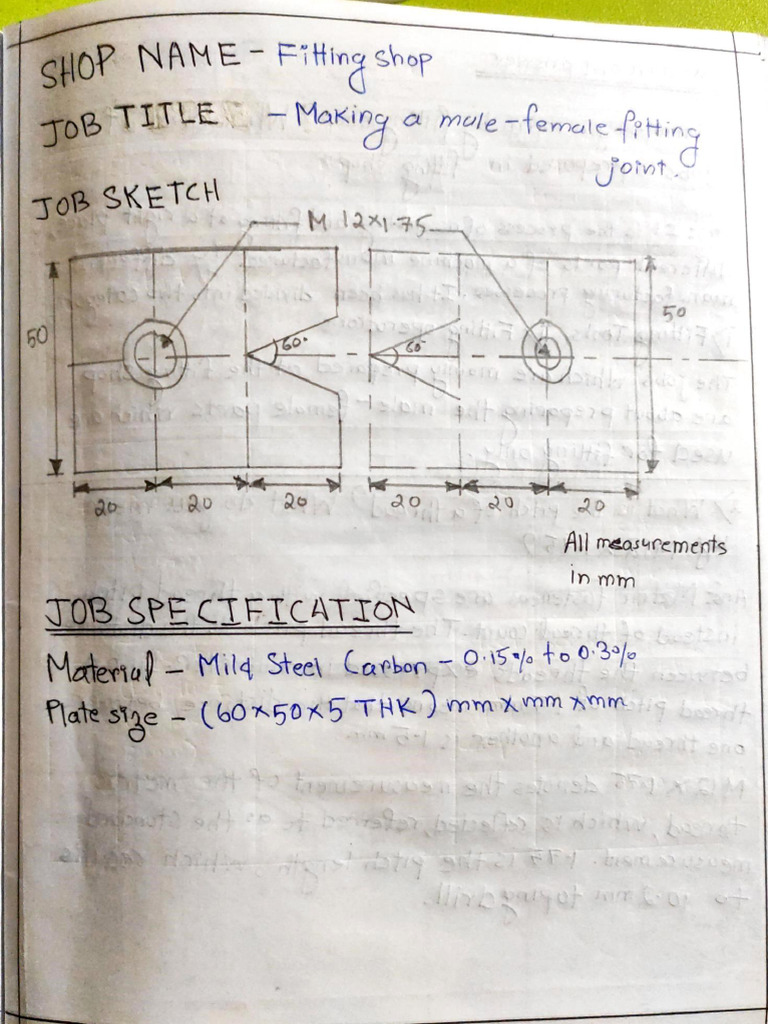 SHOP NAME - Fitting shop
JOB TITLE - Making a male-female fitting
joint.
JOB SKETCH
M 12x1.75
50
50
60°
60°
20 20 20 20 20 20
All measurements
in mm
JOB SPECIFICATION
Material - Mild Steel Carbon - 0.15% to 0.3%
Plate size - (60x50x5 THK) mm x mm x mm